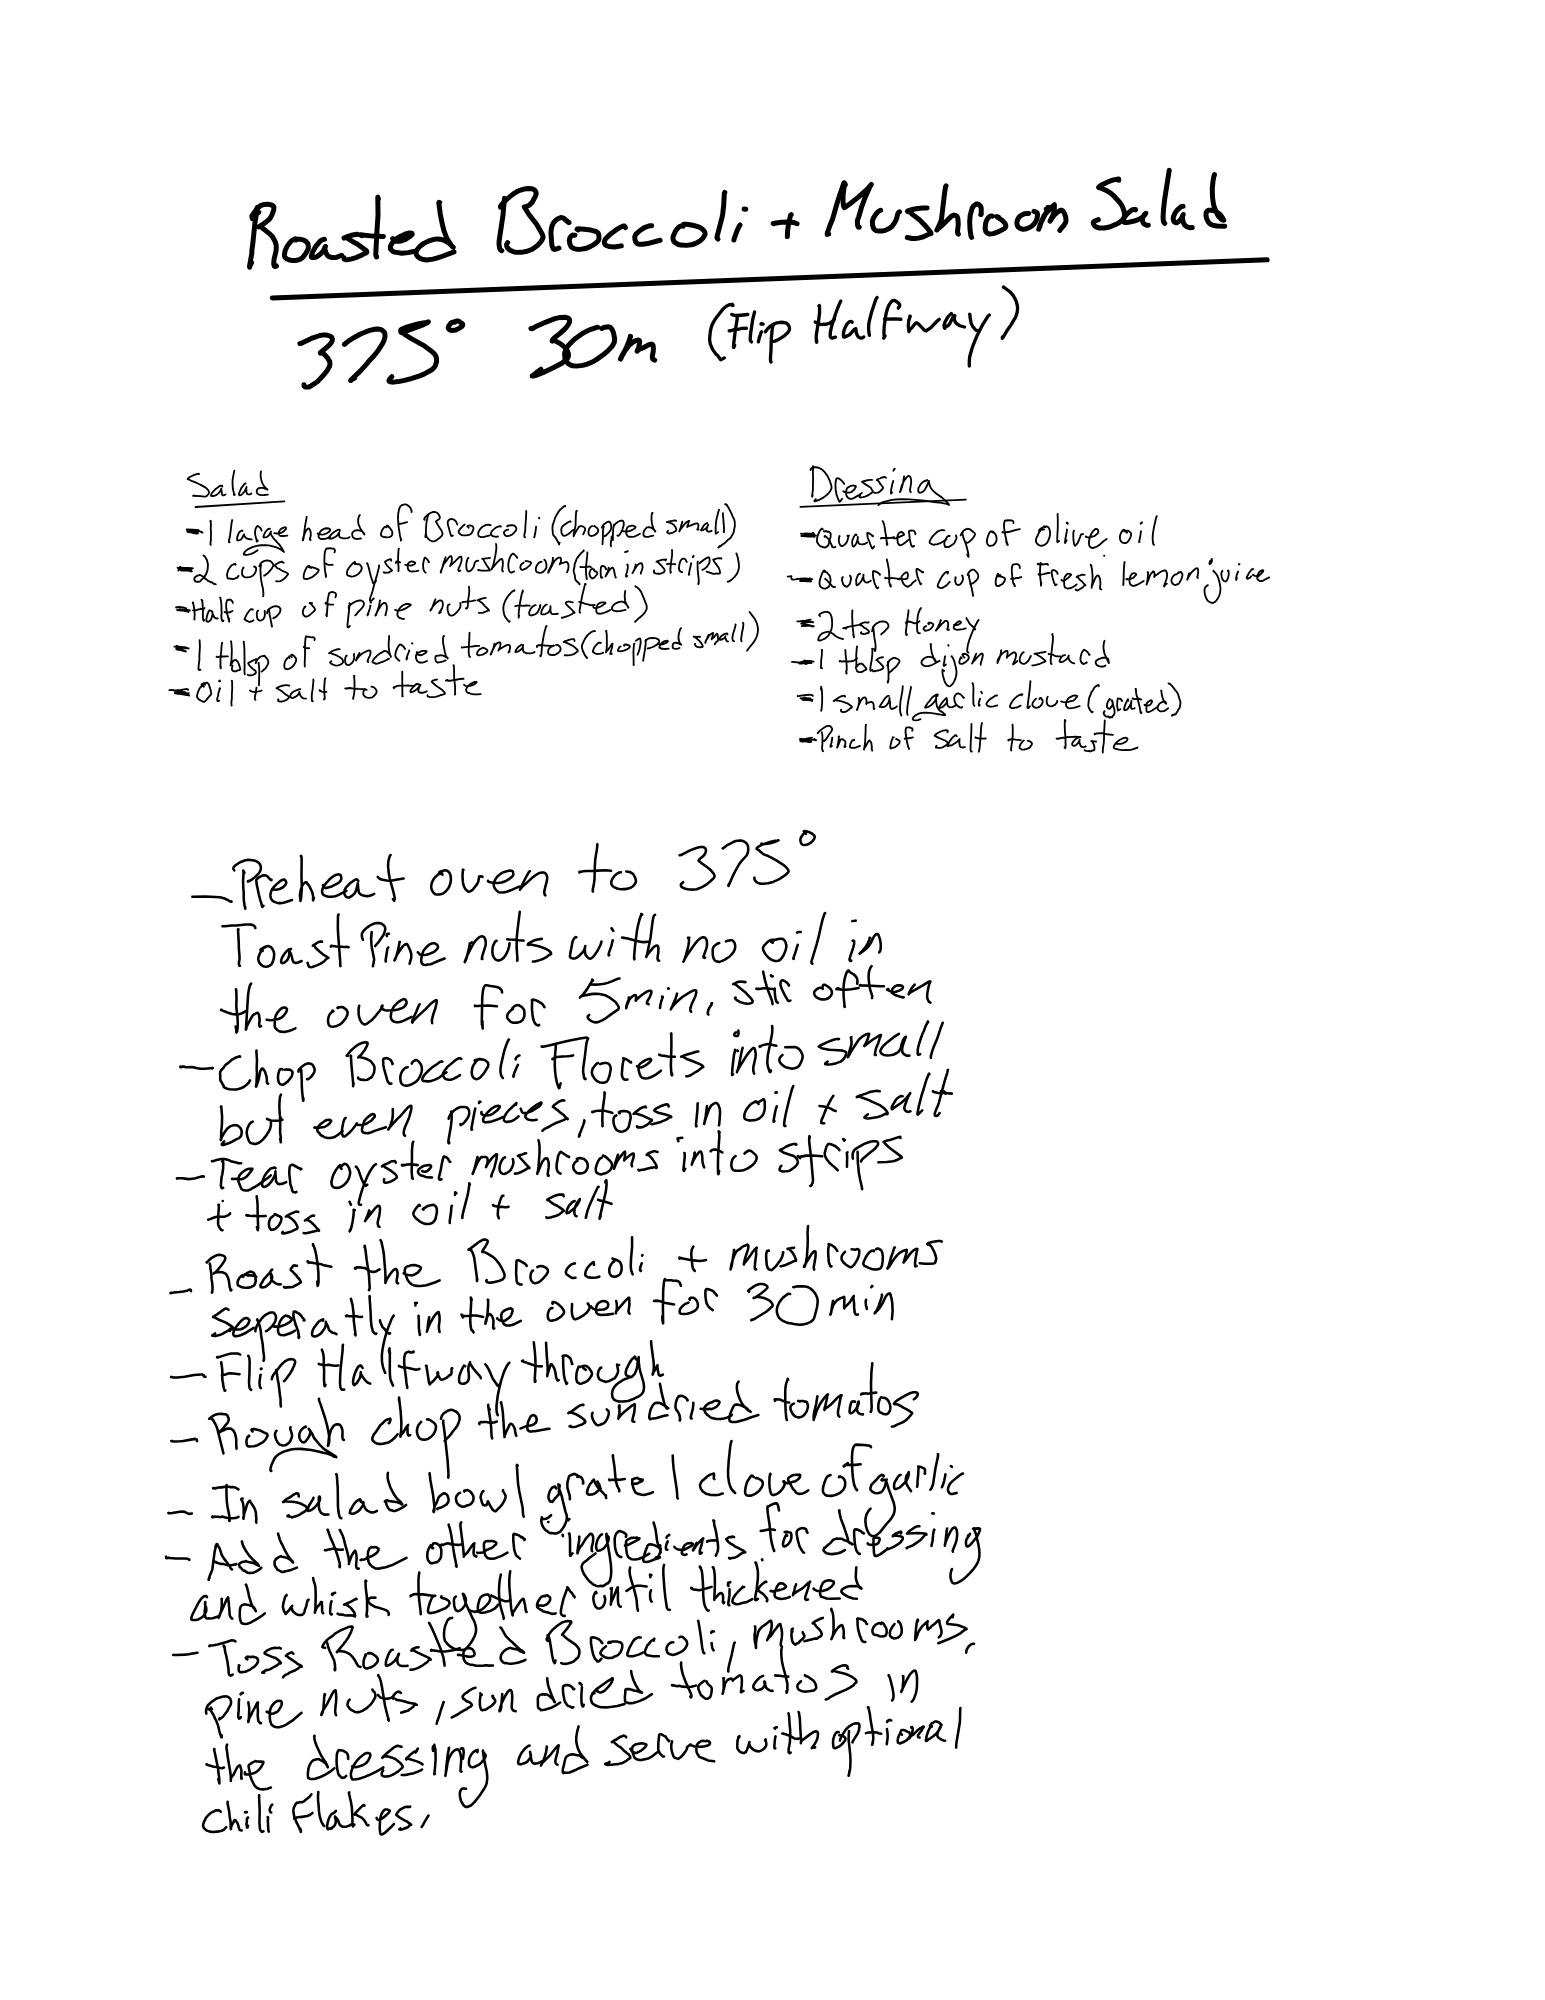 Roasted Broccoli + Mushroom Salad
375° 30m (Flip Halfway)
Salad
-1 large head of Broccoli (chopped small)
-2 cups of oyster mushroom (torn in strips)
-Half cup of pine nuts (toasted)
-1 tblsp of sundried tomatos (chopped small)
-Oil + salt to taste
Dressing
-Quarter cup of Olive oil
-Quarter cup of Fresh lemon juice
-2 tsp Honey
-1 tblsp dijon mustard
-1 small garlic clove (grated)
-Pinch of salt to taste
-Preheat oven to 375°
Toast Pine nuts with no oil in
the oven for 5min, stir often
-Chop Broccoli Florets into small
but even pieces, toss in oil + salt
-Tear oyster mushrooms into strips
+ toss in oil + salt
-Roast the Broccoli + mushrooms
seperatly in the oven for 30min
-Flip Halfway through
-Rough chop the sundried tomatos
-In salad bowl grate 1 clove of garlic
-Add the other ingredients for dressing
and whisk together until thickened
-Toss Roasted Broccoli, mushrooms,
pine nuts, sun dried tomatos in
the dressing and serve with optional
chili Flakes,